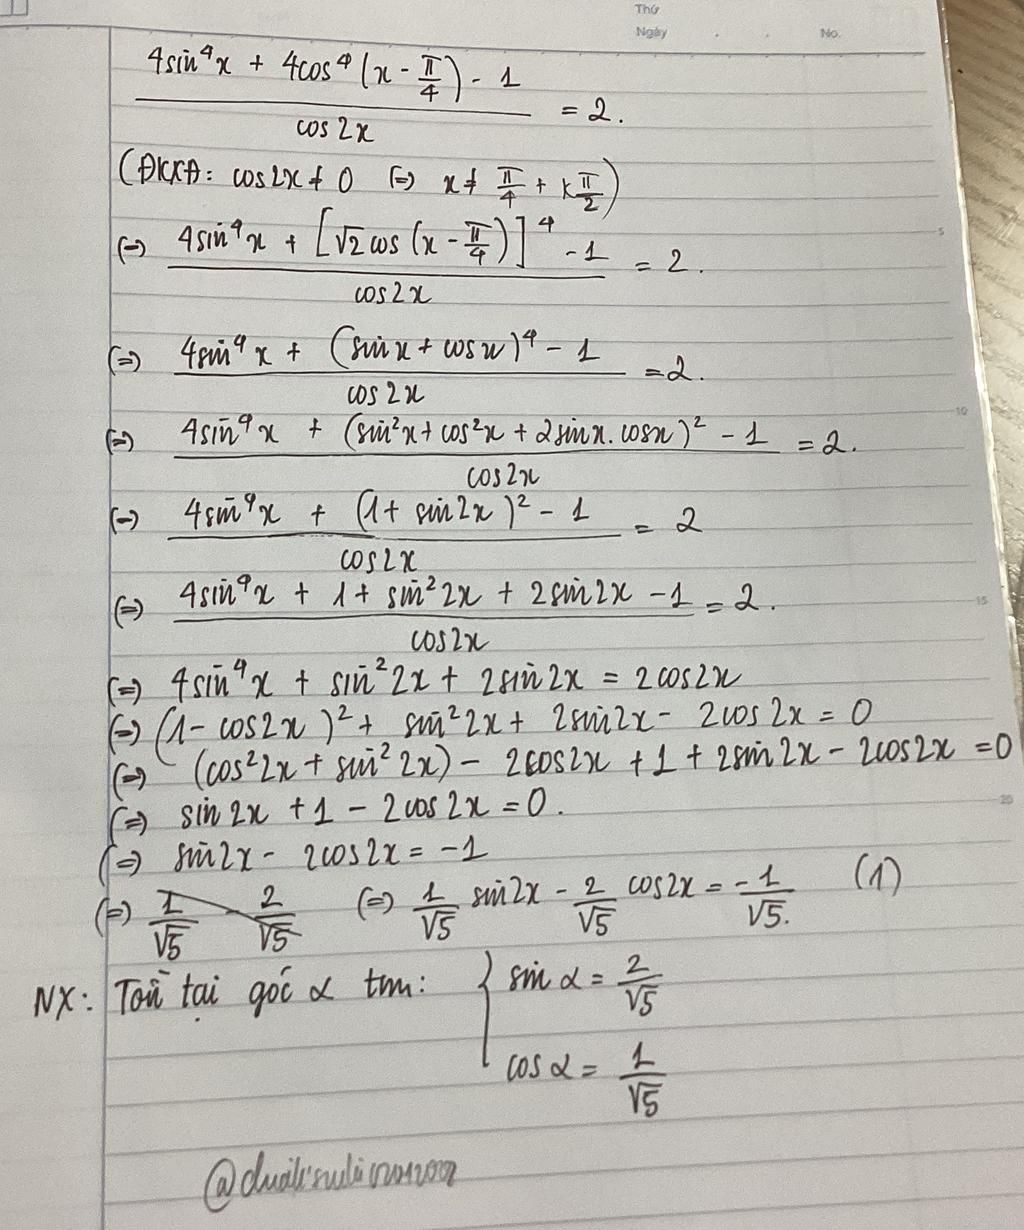 Thứ
Ngày . . No.
4sin⁴x + 4cos⁴(x - π/4) - 1 / cos2x = 2.
(ĐKXĐ: cos2x ≠ 0 (=) x ≠ π/4 + kπ/2)
(=) 4sin⁴x + [√2 cos(x - π/4)]⁴ - 1 / cos2x = 2.
(=) 4sin⁴x + (sinx + cosx)⁴ - 1 / cos2x = 2.
(=) 4sin⁴x + (sin²x + cos²x + 2sinx.cosx)² - 1 / cos2x = 2.
5
10
(=) 4sin⁴x + (1 + sin2x)² - 1 / cos2x = 2
(=) 4sin⁴x + 1 + sin²2x + 2sin2x - 1 / cos2x = 2.
15
(=) 4sin⁴x + sin²2x + 2sin2x = 2cos2x
(=) (1 - cos2x)² + sin²2x + 2sin2x - 2cos2x = 0
(=) (cos²2x + sin²2x) - 2cos2x + 1 + 2sin2x - 2cos2x = 0
(=) sin2x + 1 - 2cos2x = 0.
20
(=) sin2x - 2cos2x = -1
(=) 1/√5 - 2/√5 (=) 1/√5 sin2x - 2/√5 cos2x = -1/√5. (1)
NX: Tồn tại góc α tm: { sin α = 2/√5
cos α = 1/√5